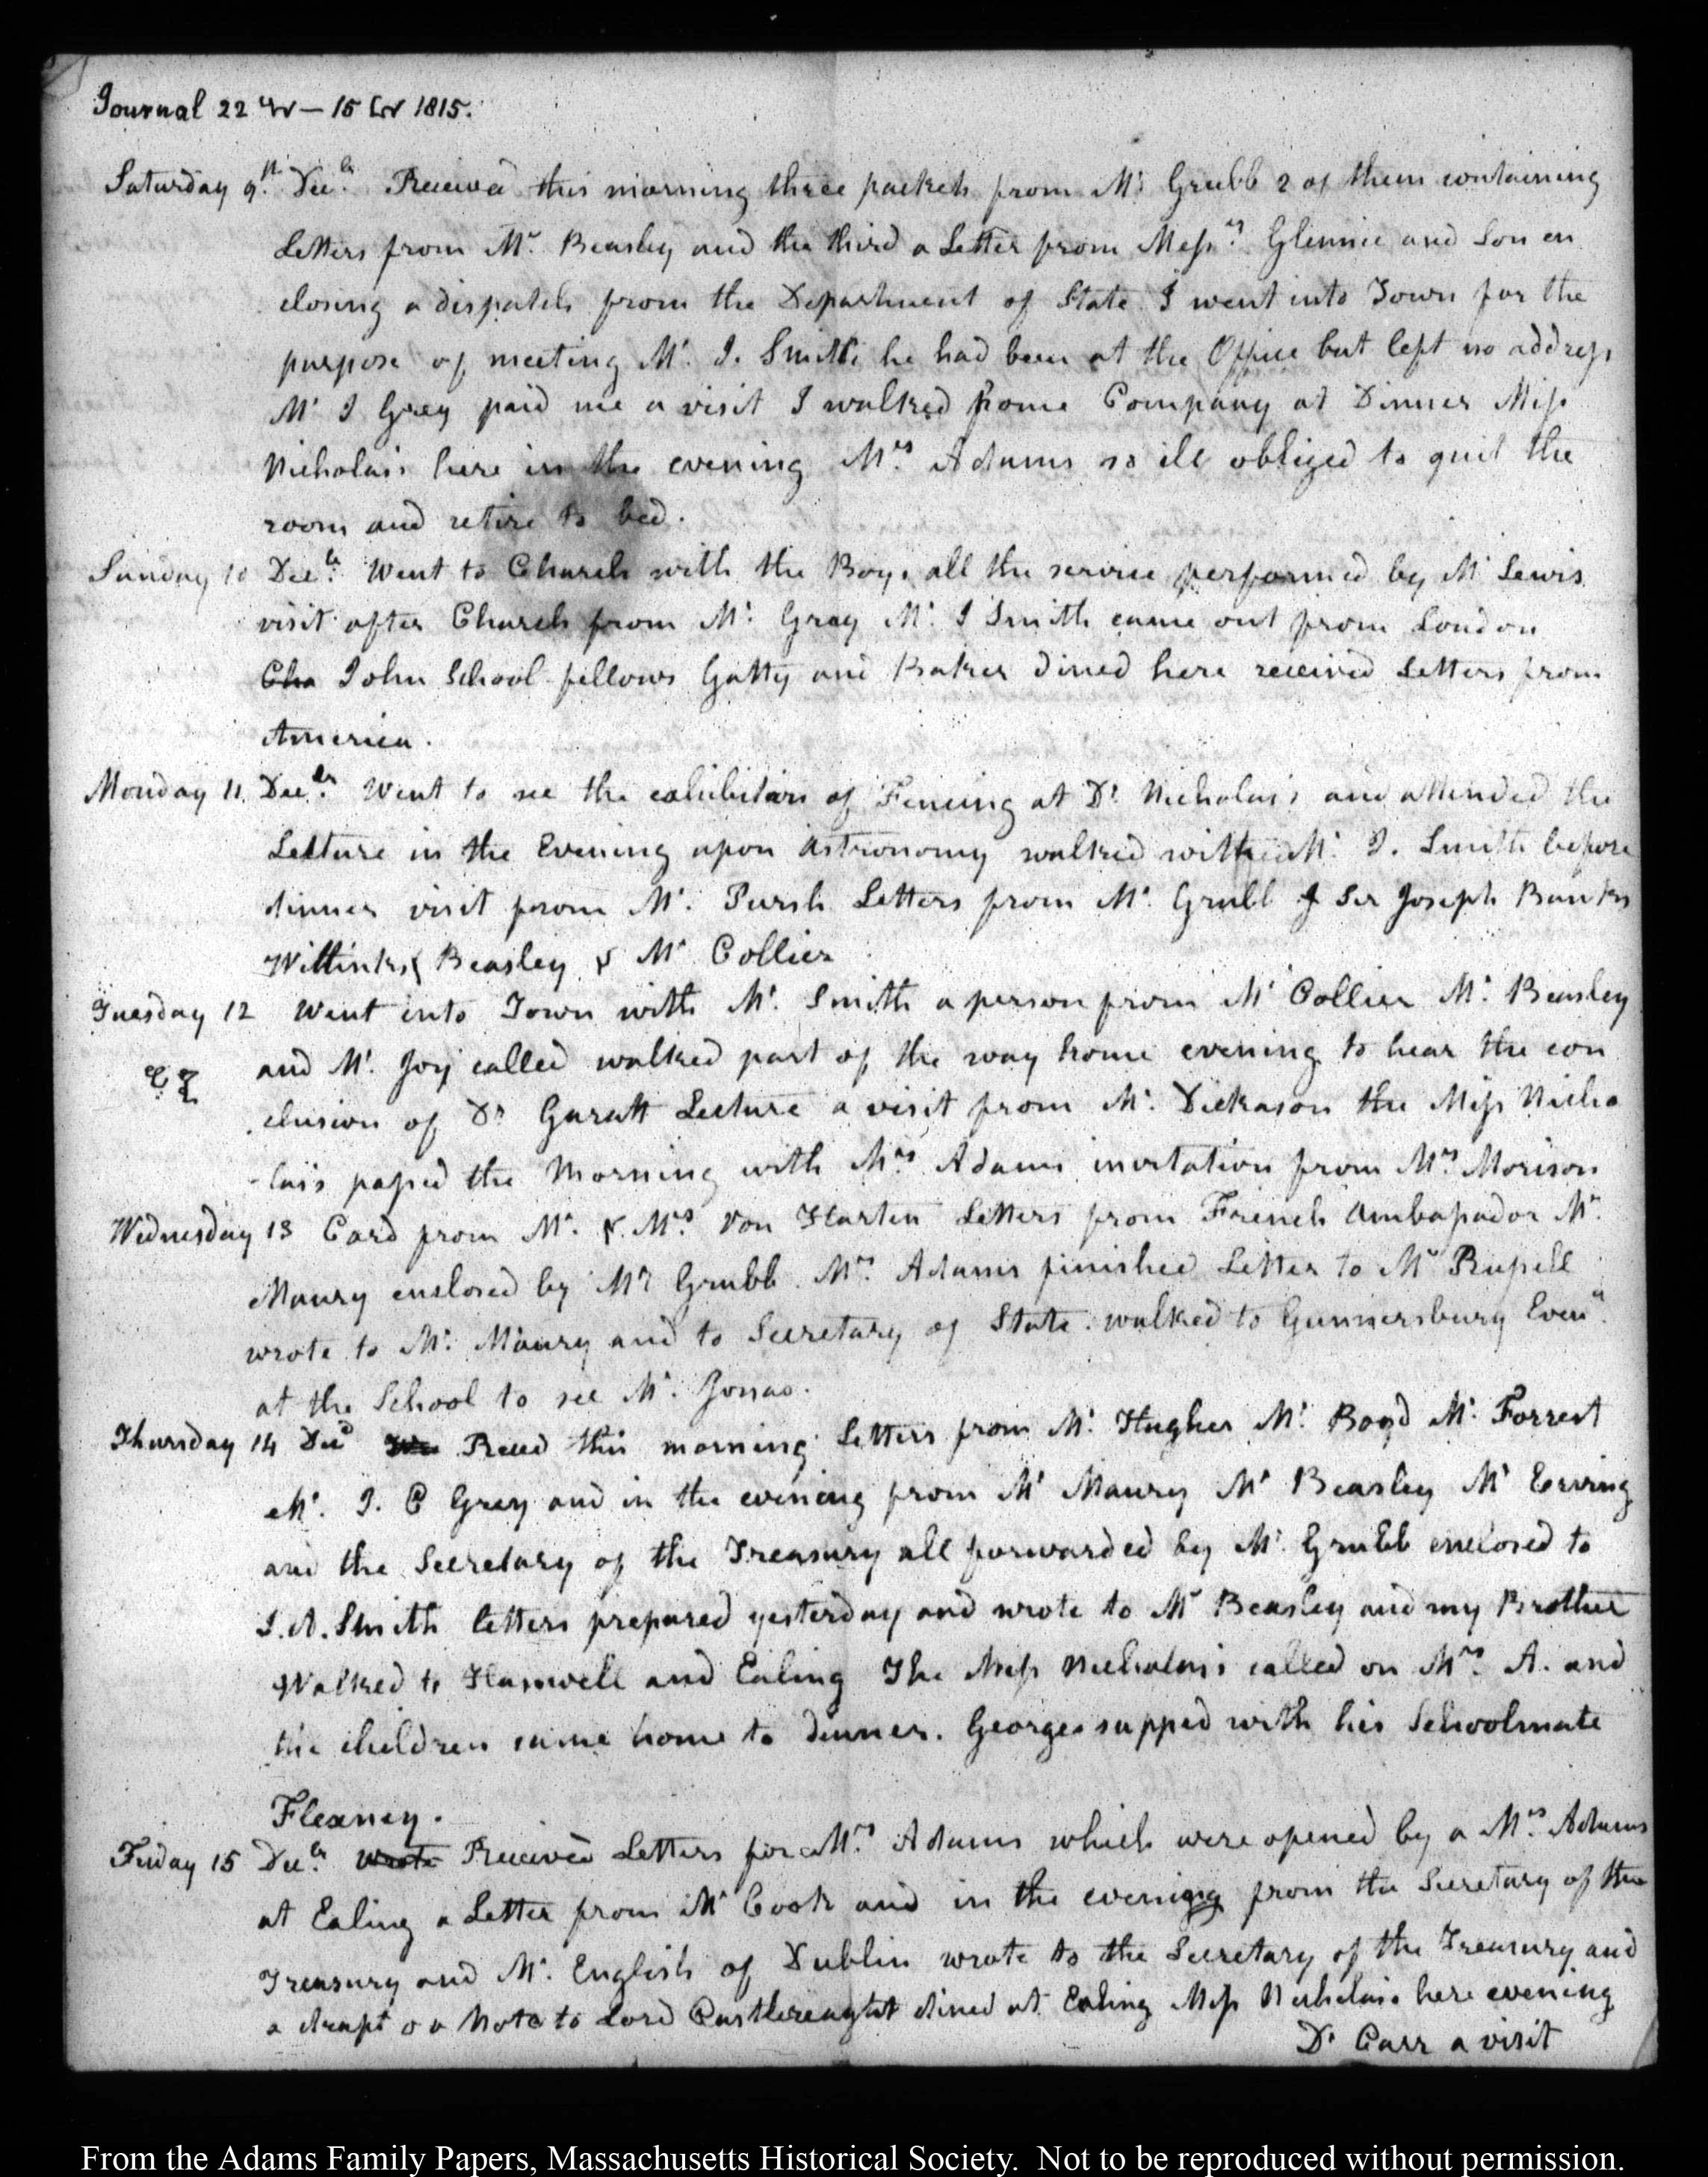 Journal 22 — 15 1815.
Saturday 9th Decr Received this morning three packets from Mr Grubb 2 of them containing
Letters from Mr Beasley and the third a Letter from Messrs Glennie and Son en
closing a dispatch from the Department of State I went into Town for the
purpose of meeting Mr. J. Smith he had been at the Office but left no address
Mr J Grey paid me a visit I walked home Company at Dinner Miss
Nicholais here in the evening Mrs Adams so ill obliged to quit the
room and retire to bed.
Sunday 10 Decr Went to Church with the Boys all the service performed by Mr Lewis
visit after Church from Mr. Gray Mr. J Smith came out from London
Cha John School fellows Gatty and Baker dined here received Letters from
America.
Monday 11. Decr Went to see the exhibition of Fencing at Dr Nicholais and attended the
Lecture in the Evening upon Astronomy walked with Mr. J. Smith before
dinner visit from Mr. Pursh Letters from Mr. Grubb Sir Joseph Banks
Willinks & Beasley & Mr Collier
Tuesday 12 Went into Town with Mr. Smith a person from Mr Collier Mr. Beasley
and Mr. Joy called walked part of the way home evening to hear the con
clusion of Dr Garatt Lecture a visit from Mr. Dickason the Miss Nicho
-lais passed the Morning with Mrs Adams invitation from Mrs Morison
Wednesday 13 Card from Mr. & Mrs Von Harten Letters from French Ambassador Mr.
Maury enclosed by Mr Grubb. Mrs Adams finished Letter to Mr Russell
wrote to Mr. Maury and to Secretary of State. walked to Gunnersbury Eveng
at the School to see Mr. Jonas.
Thursday 14 Decr Recd this morning Letters from Mr. Hughes Mr. Boyd Mr. Forrest
Mr. J. C Grey and in the evening from Mr Maury Mr Beasley Mr Erving
and the Secretary of the Treasury all forwarded by Mr. Grubb enclosed to
J. A. Smith letters prepared yesterday and wrote to Mr Beasley and my Brother
Walked to Hanwell and Ealing The Miss Nicholais called on Mrs. A. and
the children came home to dinner. George supped with his Schoolmate
Fleaney.
Friday 15 Decr wrote Received Letters for Mrs Adams which were opened by a Mrs Adams
at Ealing a Letter from Mr Cook and in the evening from the Secretary of the
Treasury and Mr. English of Dublin wrote to the Secretary of the Treasury and
a draft o a Note to Lord Castlereaght dined at Ealing Miss Nicholais here evening
Dr Carr a visit
From the Adams Family Papers, Massachusetts Historical Society. Not to be reproduced without permission.